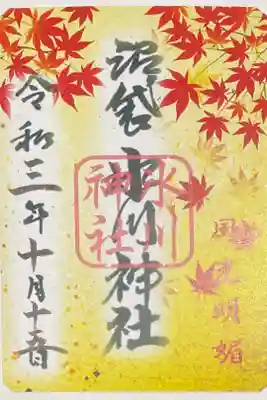 風光明媚
沼袋氷川神社
氷川
神社
令和三年十月十